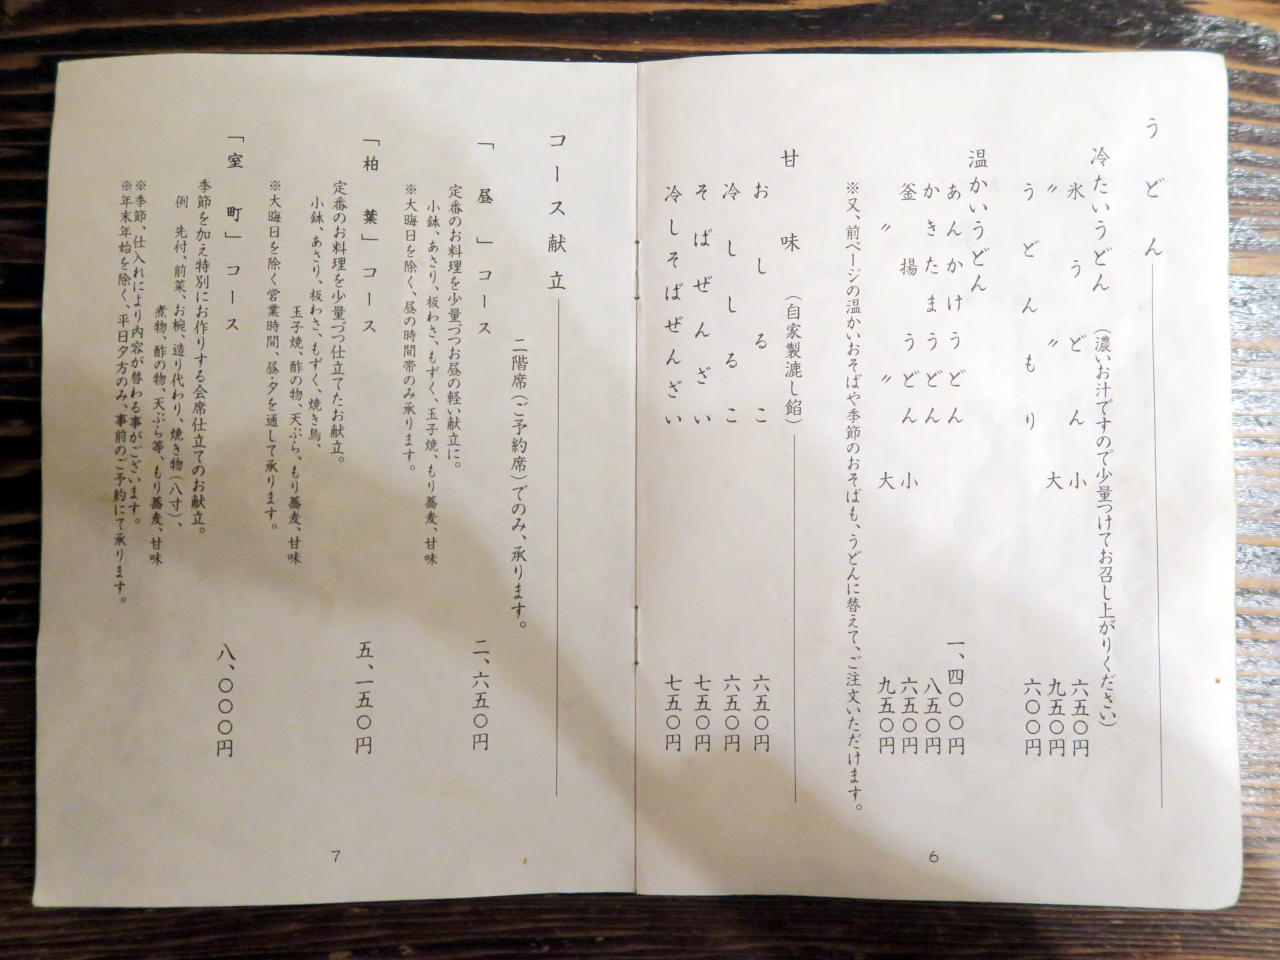 うどん
冷たいうどん (濃いお汁ですので少量つけてお召し上がりください)
氷うどん 小 六五〇円
〃 〃 大 九五〇円
うどんもり 六〇〇円
温かいうどん
あんかけうどん 一、四〇〇円
かきたまうどん 八五〇円
釜揚うどん 小 六五〇円
〃 〃 大 九五〇円
※又、前ページの温かいおそばや季節のおそばも、うどんに替えて、ご注文いただけます。
甘味 (自家製漉し餡)
おしるこ 六五〇円
冷ししるこ 六五〇円
そばぜんざい 七五〇円
冷しそばぜんざい 七五〇円
6
コース献立
二階席(ご予約席)でのみ、承ります。
「昼」コース 二、六五〇円
定番のお料理を少量づつお昼の軽い献立に。
小鉢、あさり、板わさ、もずく、玉子焼、もり蕎麦、甘味
※大晦日を除く、昼の時間帯のみ承ります。
「柏葉」コース 五、一五〇円
定番のお料理を少量づつ仕立てたお献立。
小鉢、あさり、板わさ、もずく、焼き鳥、
玉子焼、酢の物、天ぷら、もり蕎麦、甘味
※大晦日を除く営業時間、昼・夕を通して承ります。
「室町」コース 八、〇〇〇円
季節を加え特別にお作りする会席仕立てのお献立。
例 先付、前菜、お椀、造り代わり、焼き物(八寸)、
煮物、酢の物、天ぷら等、もり蕎麦、甘味
※季節、仕入れにより内容が替わる事がございます。
※年末年始を除く、平日夕方のみ、事前のご予約にて承ります。
7